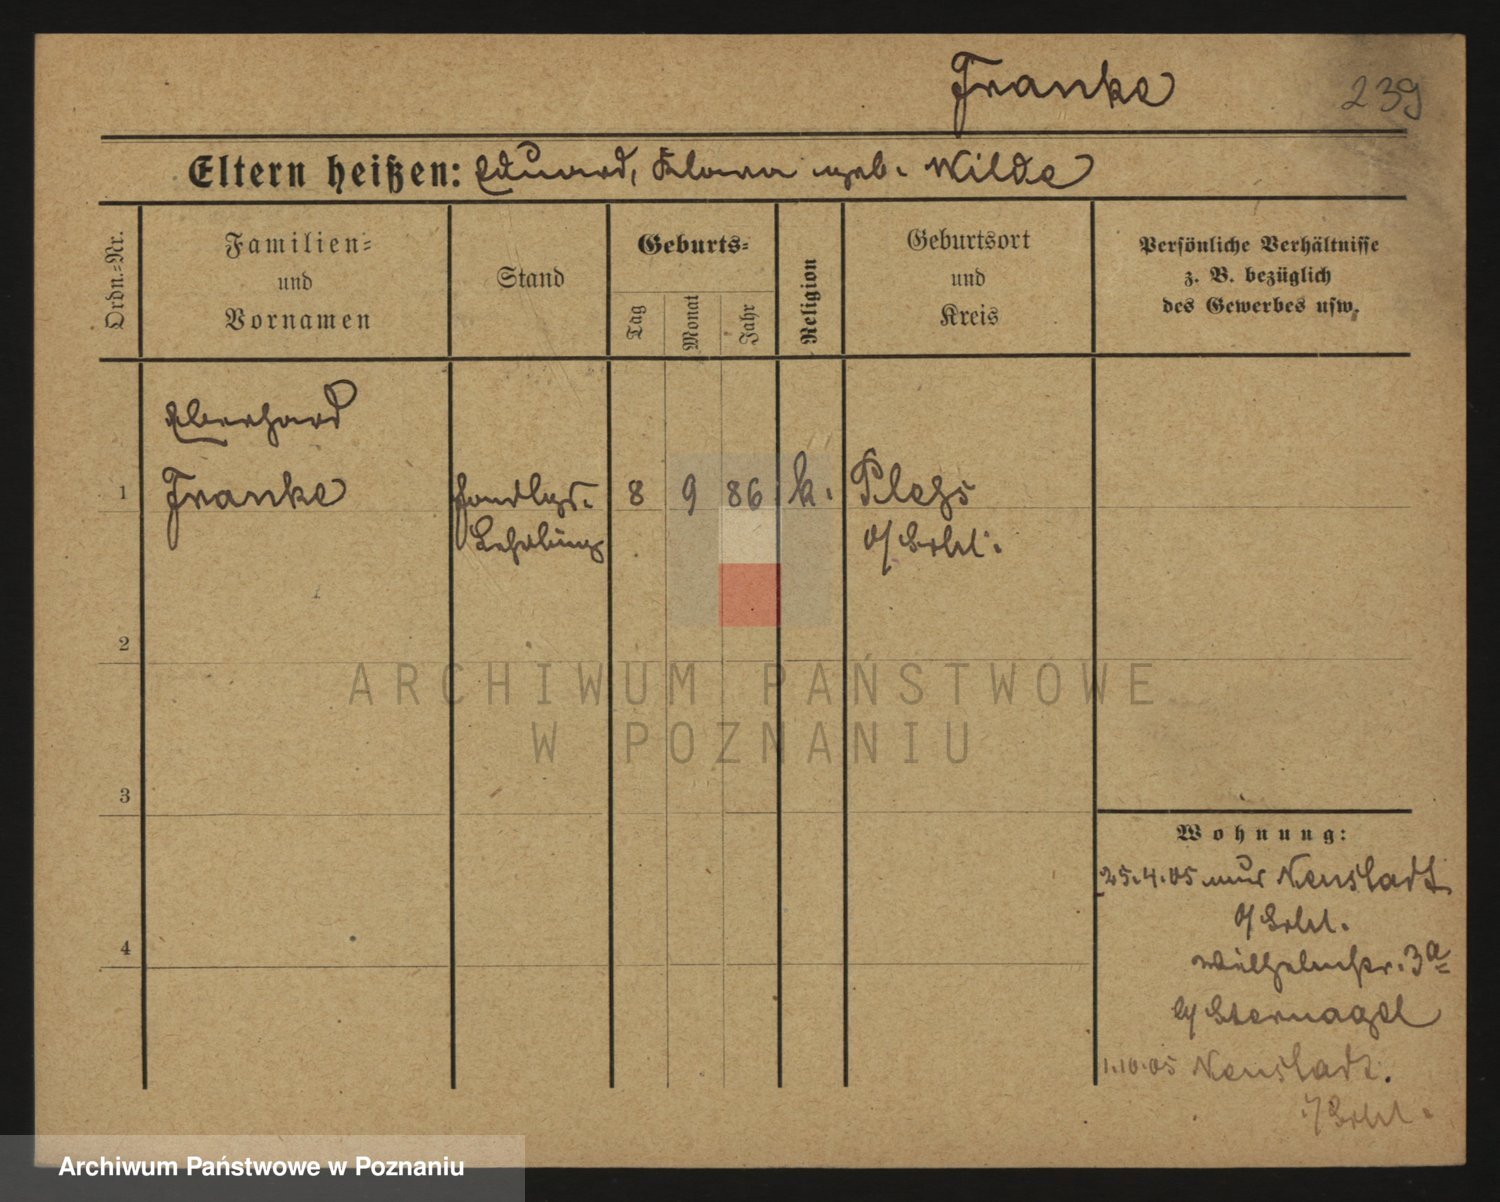 Franke
239
Eltern heißen: Eduard, Klara geb. Wilde
Ordn.-Nr.
Familien-
und
Vornamen
Stand
Geburts-
Tag
Monat
Jahr
Religion
Geburtsort
und
Kreis
Persönliche Verhältnisse
z. B. bezüglich
des Gewerbes usw.
Eberhard
1 Franke Handlgs. 8 9 86 k.
Lehrling O/Schl.
2
3
4
ARCHIWUM PAŃSTWOWE
W POZNANIU
Wohnung:
25.4.05 aus Neustadt
O/Schl.
Wilhelmstr. 3a
b/ Sternagel
1.10.05 Neustadt.
O/Schl.
Archiwum Państwowe w Poznaniu